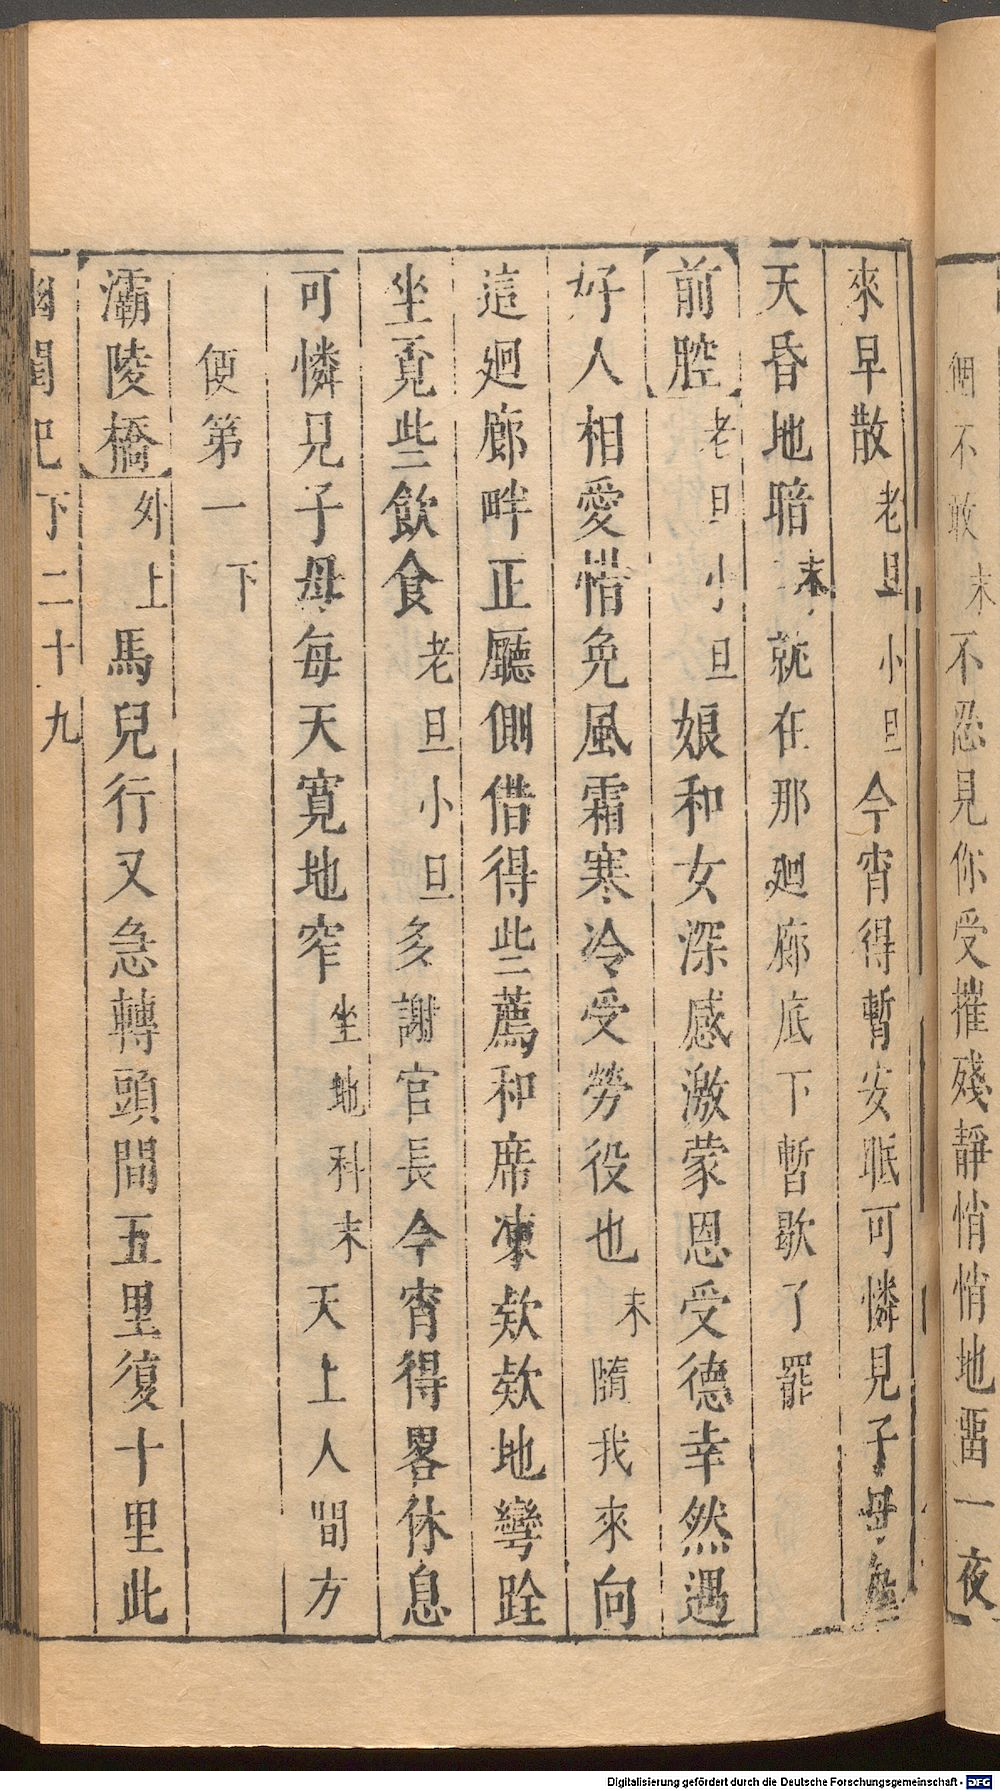 個不敢末不忍見你受摧殘靜悄悄地畱一夜
來早散老旦小旦今宵得暫安眠可憐見子母每
天昏地暗末就在那廻廊底下暫歇了罷
前腔老旦小旦娘和女深感激蒙恩受德幸然遇
好人相愛惜免風霜寒冷受勞役也末隨我來向
這廻廊畔正廳側借得些薦和席凍欸欸地彎跧
坐覓些飲食老旦小旦多謝官長今宵得畧休息
可憐見子母每天寛地窄坐地科末天上人間方
便第一下
灞陵橋外上馬兒行又急轉頭間五里復十里此
幽閨記下二十九
Digitalisierung gefördert durch die Deutsche Forschungsgemeinschaft - DFG